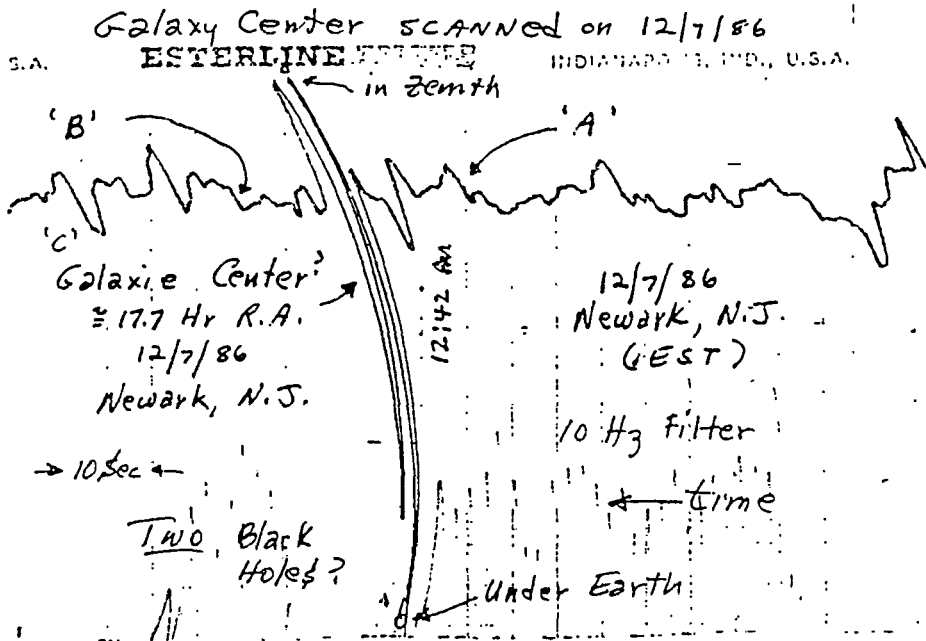 Galaxy Center SCANNED on 12/7/86
S.A. ESTERLINE INDIANAPOLIS, IND., U.S.A.
in Zenith
'B'
'A'
'C'
Galaxie Center?
≅ 17.7 Hr R.A.
12/7/86
Newark, N.J.
12:42 AM
12/7/86
Newark, N.J.
(EST)
10 Hz Filter
10 Sec
time
Two Black
Holes?
Under Earth